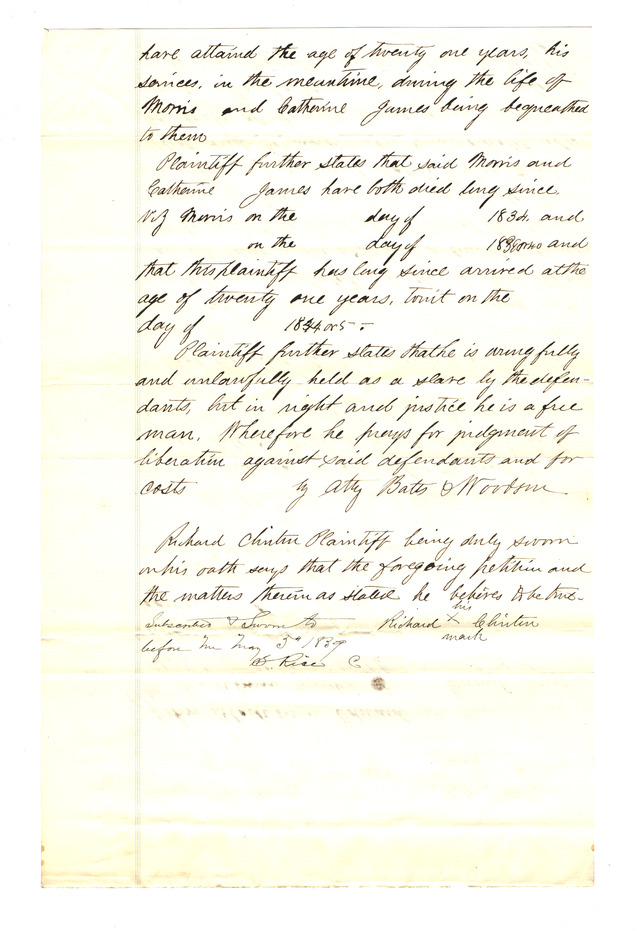 have attained the age of twenty one years, his
services, in the meantime, during the life of
Morris and Catherine James being bequeathed
to them
Plaintiff further states that said Morris and
Catherine James have both died long since
viz Morris on the day of 1834 and
on the day of and
that this plaintiff has long since arrived at the
age of twenty one years, towit on the
day of or 5 -
Plaintiff further states that he is wrongfully
and unlawfully held as a slave by the defen-
dants, but in right and justice he is a free
man. Wherefore he prays for judgment of
liberation against said defendants and for
costs by Atty Bates & Woodson
Richard Clinton Plaintiff being duly sworn
on his oath says that the foregoing petition and
the matters therein as stated he believes to be true -
Subscribed & Sworn to Richard his X mark Clinton
before me May 3d
Rise C